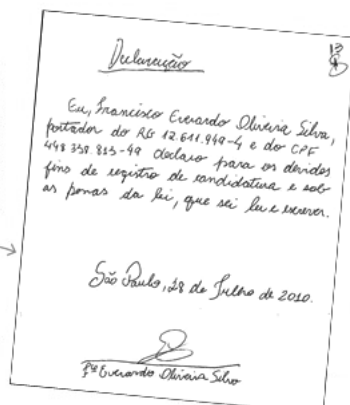 13
Declaração
Eu, Francisco Everardo Oliveira Silva,
portador do RG 12.611.949-4 e do CPF
448.339.813-49 declaro para os devidos
fins de registro de candidatura e sob
as penas da lei, que sei ler e escrever.
São Paulo, 28 de Julho de 2010.
Fco Everardo Oliveira Silva